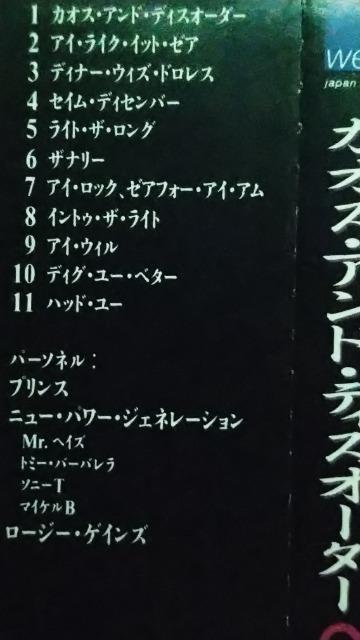 1 カオス・アンド・ディスオーダー
2 アイ・ライク・イット・ゼア
3 ディナー・ウィズ・ドロレス
4 セイム・ディセンバー
5 ライト・ザ・ロング
6 ザナリー
7 アイ・ロック、ゼアフォー・アイ・アム
8 イントゥ・ザ・ライト
9 アイ・ウィル
10 ディグ・ユー・ベター
11 ハッド・ユー
パーソネル：
プリンス
ニュー・パワー・ジェネレーション
Mr. ヘイズ
トミー・バーバレラ
ソニーT
マイケルB
ロージー・ゲインズ
we
japan
カオス・アンド・ディスオーダー